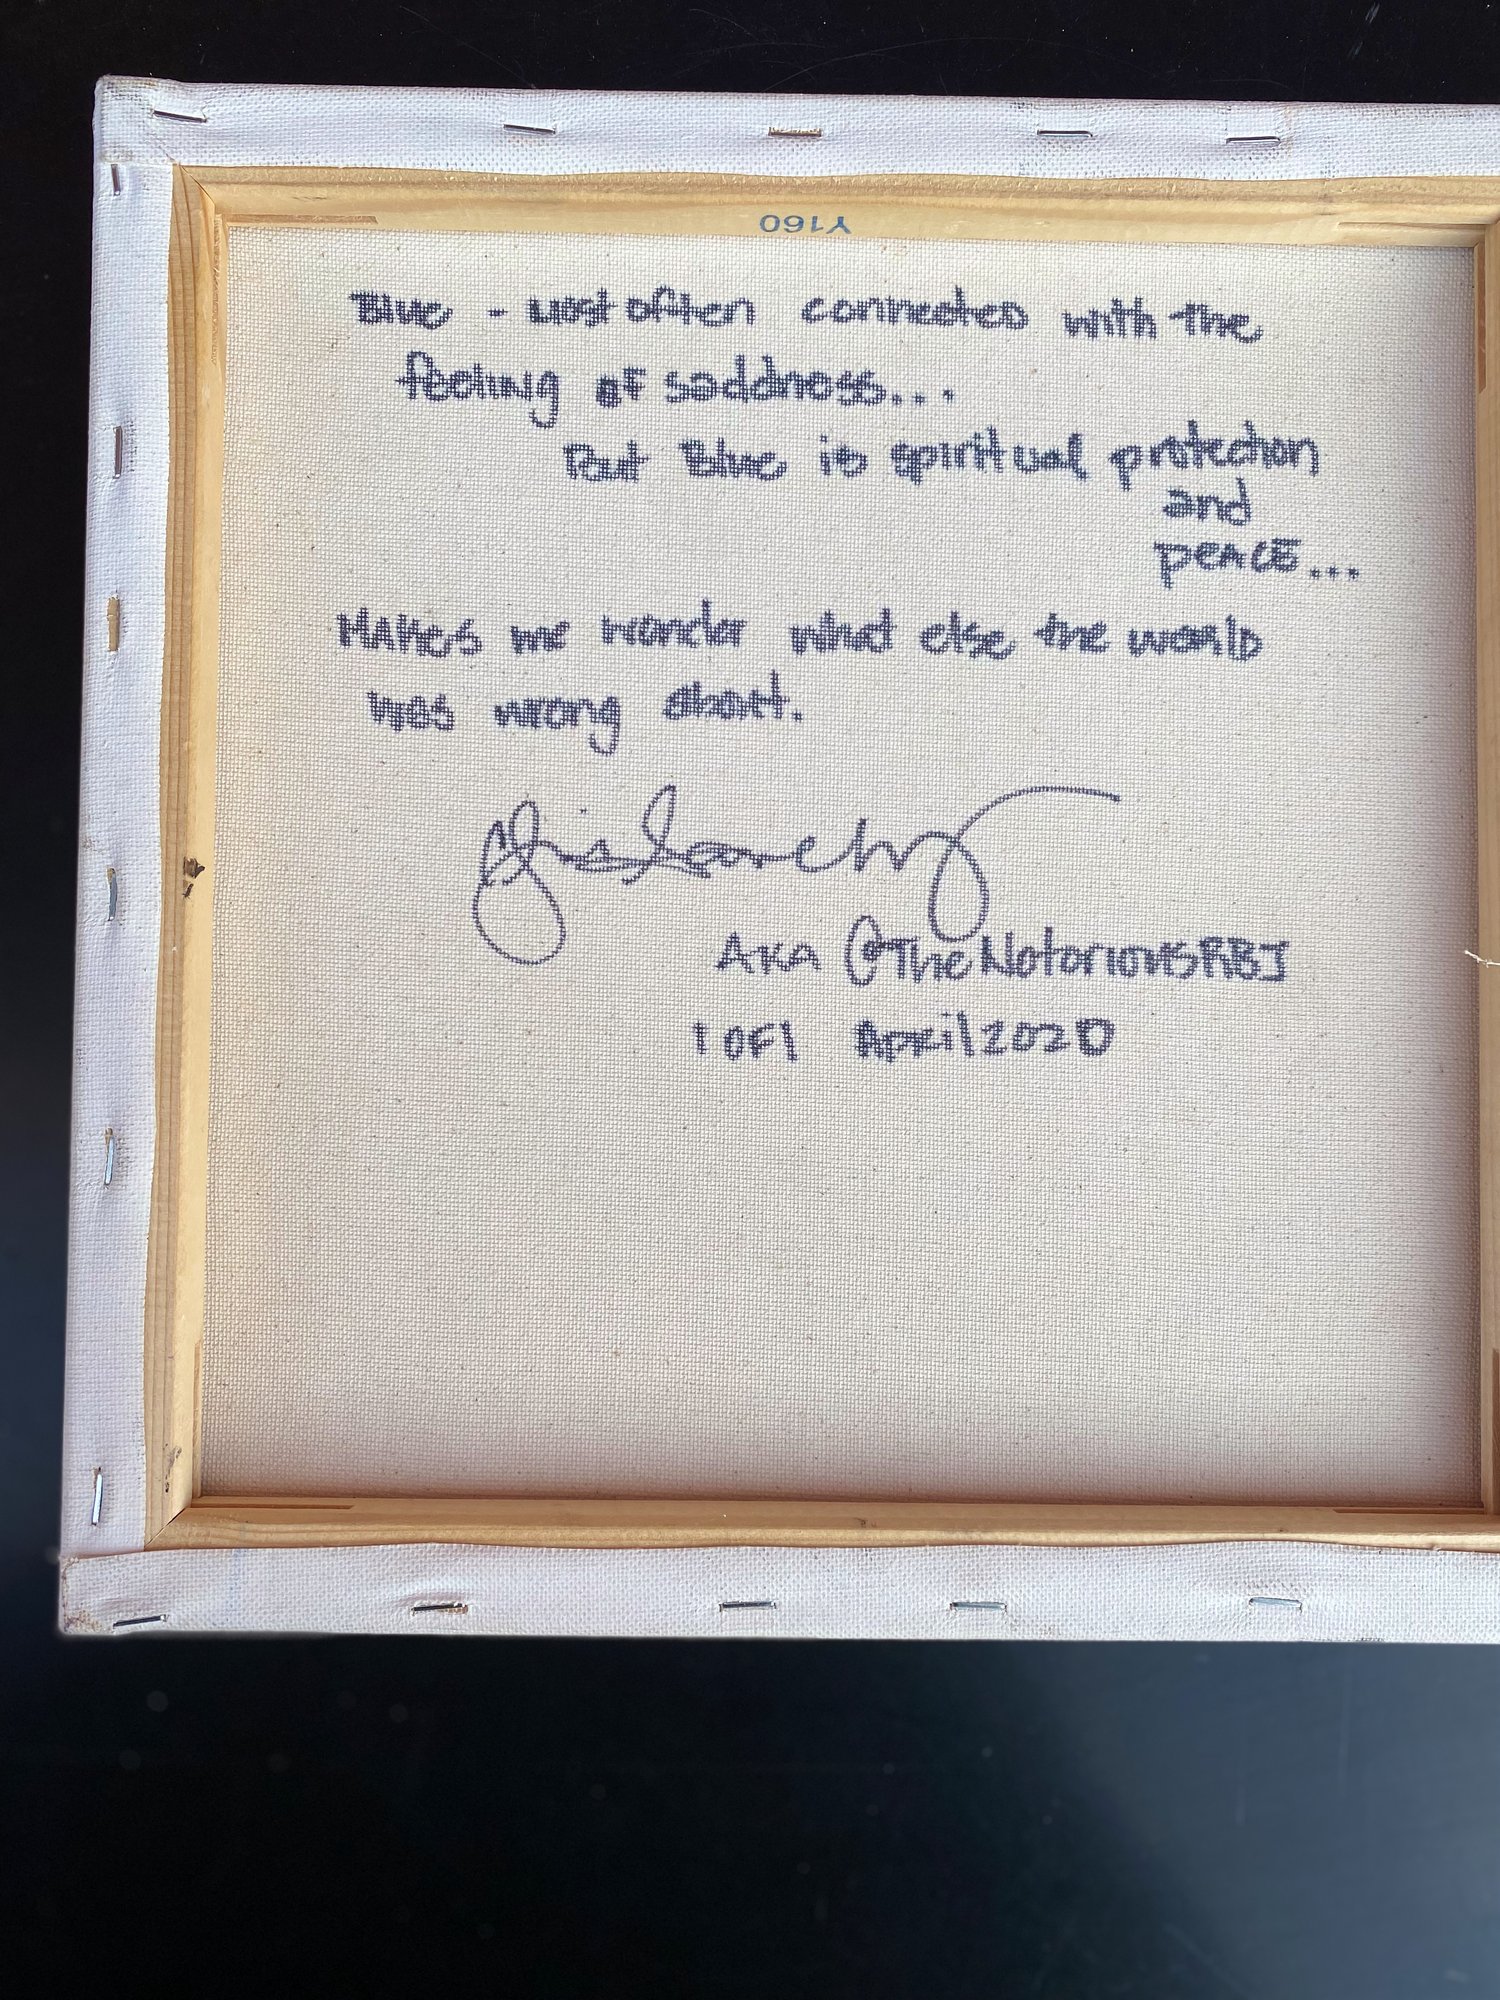 Y160
Blue - most often connected with the
feeling of saddness...
But Blue is spiritual protection
and
peace...
Makes me wonder what else the world
was wrong about.
AKA @TheNotoriousRBJ
1 of 1 April 2020